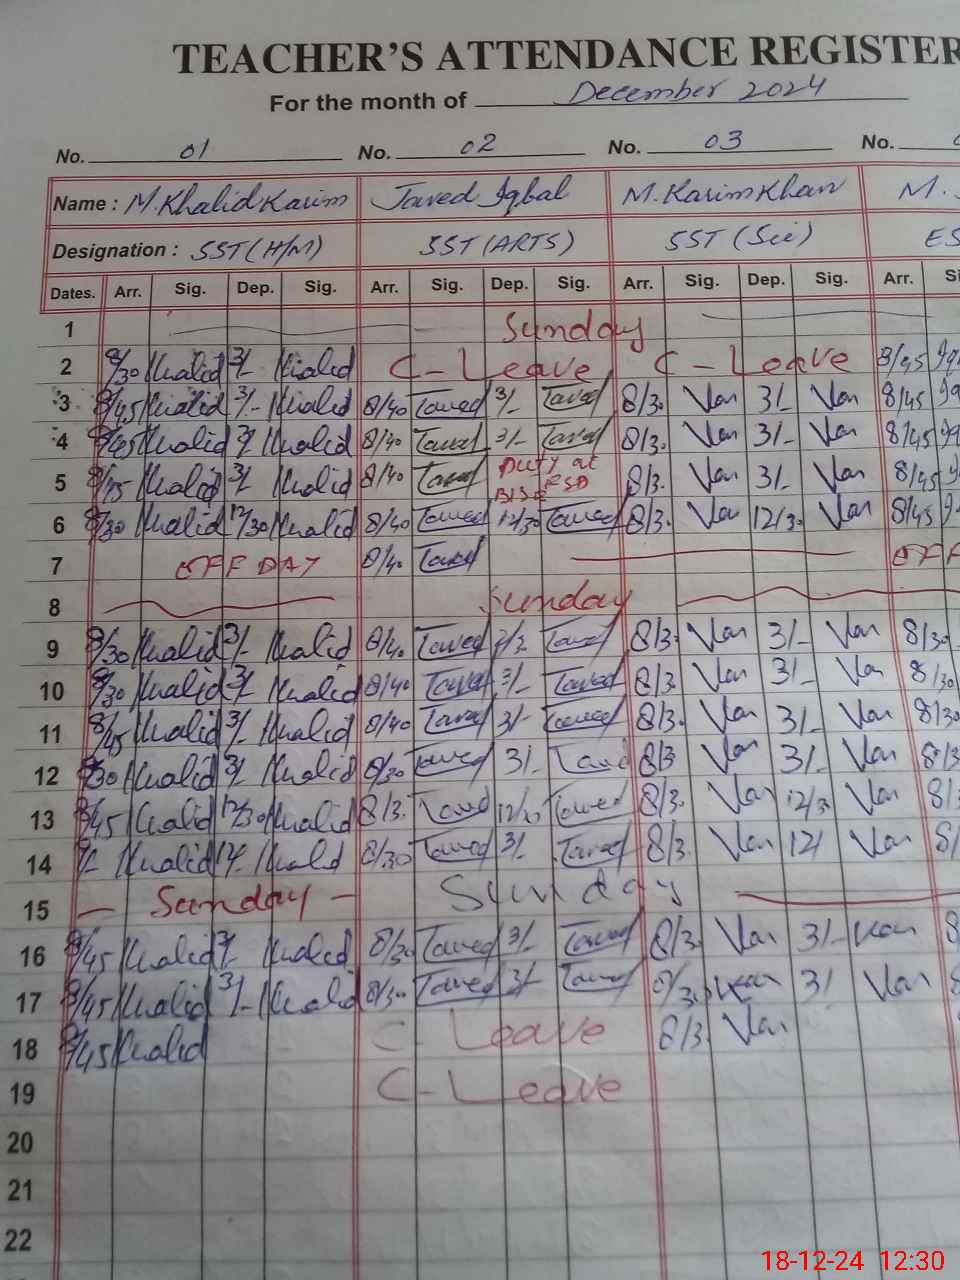 TEACHER'S ATTENDANCE REGISTER
For the month of December 2024
No. 01 No. 02 No. 03 No.
Name : M.Khalid Karim Javed Iqbal M.Karim Khan M.
Designation : SST(H/M) SST(ARTS) SST (Sci) ES
Dates. Arr. Sig. Dep. Sig. Arr. Sig. Dep. Sig. Arr. Sig. Dep. Sig. Arr. Si
1 Sunday
2 8/30 Khalid 3/- Khalid C-Leave C-Leave 8/45
3 8/45 Khalid 3/- Khalid 8/40 Javed 3/- Javed 8/3. 3/- 8/45
4 8/45 Khalid 3/- Khalid 8/40 Javed 3/- Javed 8/3. 3/- 8/45
5 8/45 Khalid 3/- Khalid 8/40 Javed Duty at BISE FSD 8/3. 3/- 8/45
6 8/30 Khalid 12/30 Khalid 8/40 Javed 12/30 Javed 8/3. 12/3. 8/45
7 OFF DAY 8/40 Javed OFF
8 Sunday
9 8/30 Khalid 3/- Khalid 8/40 Javed Javed 8/3. 3/- 8/30
10 8/30 Khalid 3/- Khalid 8/40 Javed 3/- Javed 8/3. 3/- 8/30
11 8/45 Khalid 3/- Khalid 8/40 Javed 3/- Javed 8/3. 3/- 8/30
12 8/30 Khalid 3/- Khalid 8/30 Javed 3/- Javed 8/3 3/- 8/3
13 8/45 Khalid 12/30 Khalid 8/3. Javed Javed 8/3. 12/3 8/
14 Khalid Khalid 8/30 Javed 3/- Javed 8/3. 12/ 8/
15 - Sunday - Sunday
16 8/45 Khalid 3/- Khalid 8/30 Javed 3/- Javed 8/3. 3/- 8
17 8/45 Khalid 3/- Khalid 8/30 Javed 3/- Javed 8/30 3/ 8
18 8/45 Khalid C-Leave 8/3.
19 C-Leave
20
21
22
18-12-24 12:30